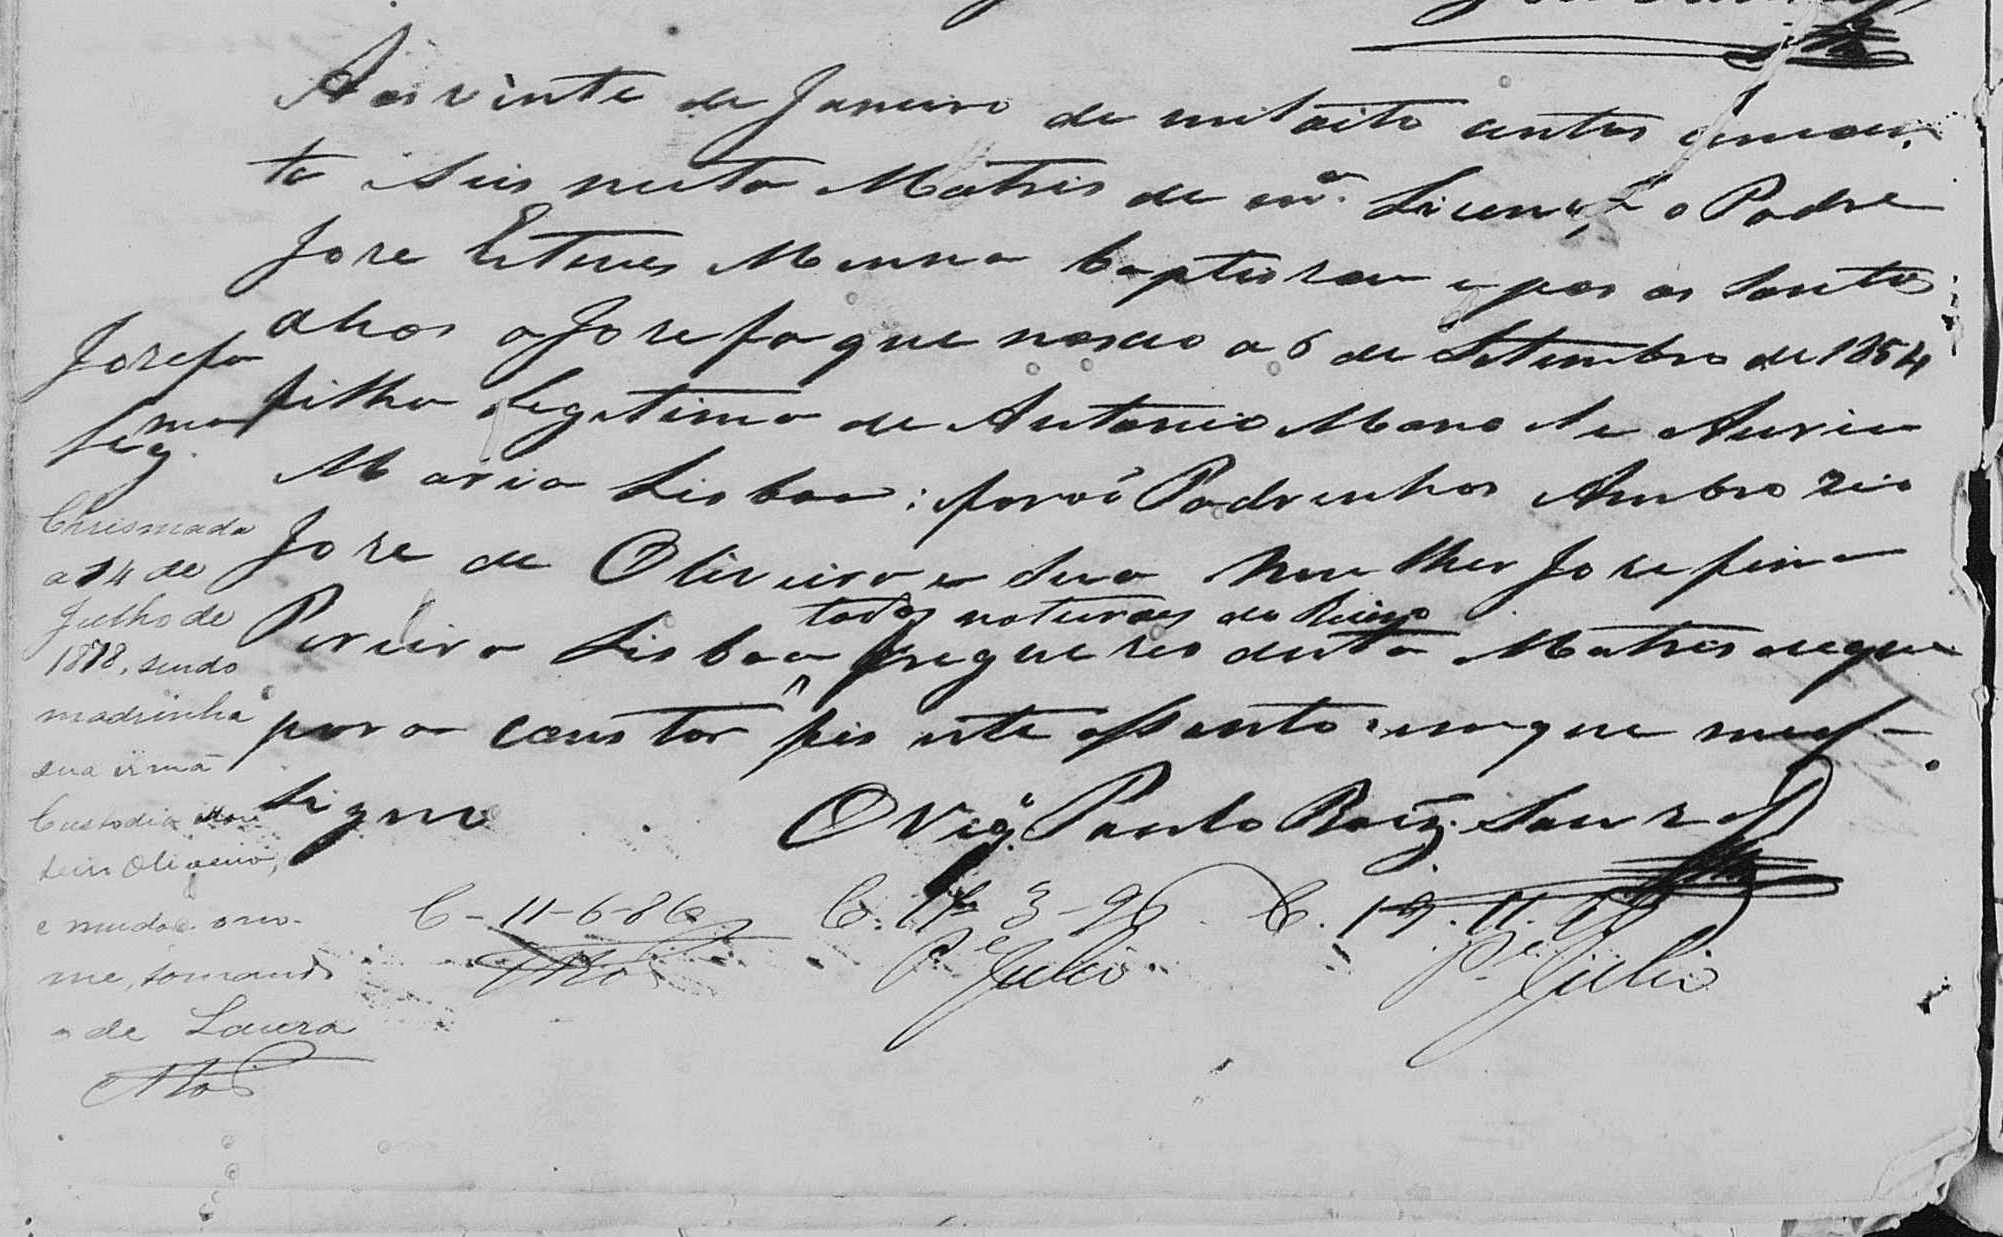 Aos vinte de Janeiro de mil oito centos cincoen-
ta seis nesta Matris de mª. Licença o Padre
Jose Esteves Menna baptisou e pos os santos
olhos a Josefa que nasceo a 6 de Setembro de 1854
filha legitima de Antonio
Maria Lisboa : forão Padrinhos Ambrozio
Jose de Oliveira e sua mulher Josefina
todos naturaes do Reino
Pereira Lisboa freguezes desta Matris de que
para constar fis este assento em que me as-
signo
O Vigº. Paulo Roiz.
Josefa
Chrismada
a 14 de
Julho de
1878, sendo
madrinha
sua irmã
Custodia
Oliveira,
e mudou o no-
me, tomando
o de Laura
C - 11-6-86
C. 3-96
Pe. Julio
C. 19.11.
Pe. Julio